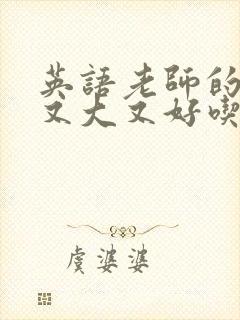 英語老師的
又大又好喫
虞婆婆